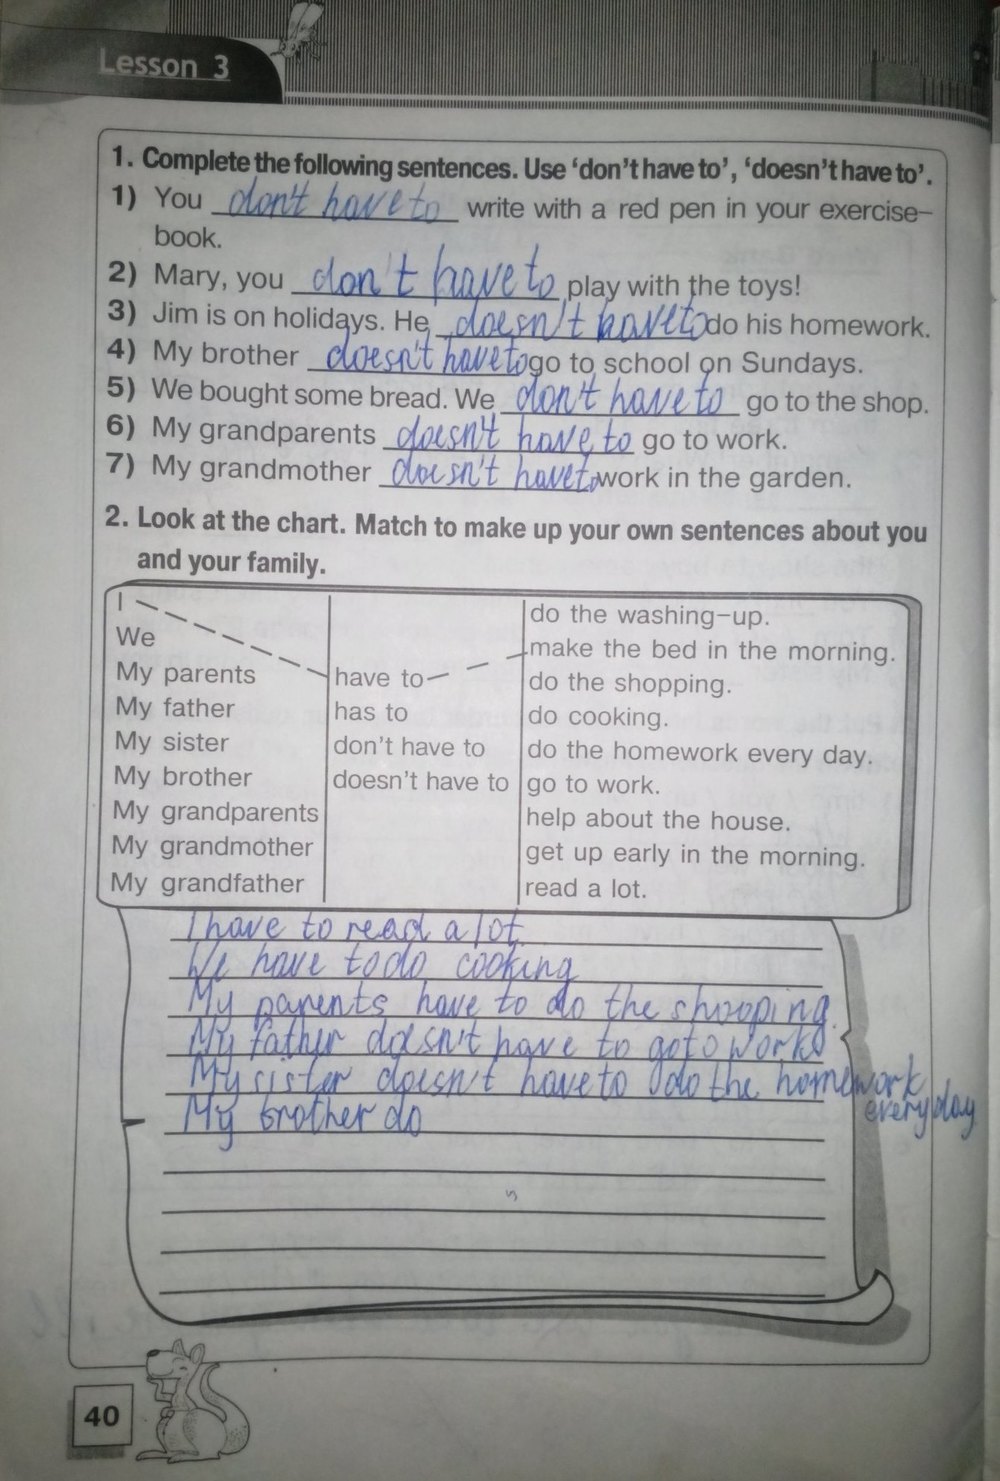 Lesson 3
1. Complete the following sentences. Use ‘don’t have to’, ‘doesn’t have to’.
1) You don't have to write with a red pen in your exercise-
book.
2) Mary, you don't have to play with the toys!
3) Jim is on holidays. He doesn't have to do his homework.
4) My brother doesn't have to go to school on Sundays.
5) We bought some bread. We don't have to go to the shop.
6) My grandparents doesn't have to go to work.
7) My grandmother doesn't have to work in the garden.
2. Look at the chart. Match to make up your own sentences about you
and your family.
I
We
My parents
My father
My sister
My brother
My grandparents
My grandmother
My grandfather
have to
has to
don't have to
doesn't have to
do the washing-up.
make the bed in the morning.
do the shopping.
do cooking.
do the homework every day.
go to work.
help about the house.
get up early in the morning.
read a lot.
I have to read a lot.
We have to do cooking
My parents have to do the shooping.
My father doesn't have to go to work
My sister doesn't have to do the homework
every day
My brother do
40